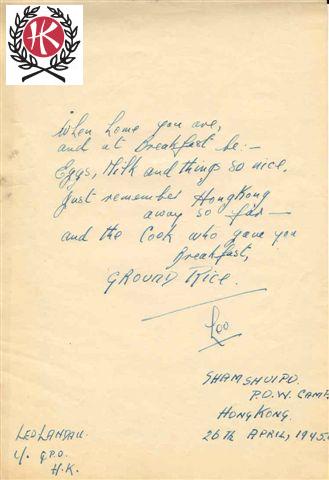 HK
When home you are,
and at Breakfast be:-
Eggs, Milk and things so nice,
Just remember HongKong
away so far—
and the Cook who gave you
Breakfast,
GROUND RICE.
Leo
SHAMSHUIPO.
P.O.W. CAMP
HONGKONG.
26TH APRIL, 1945.
LEO LANDAU.
c/o G.P.O.
H.K.